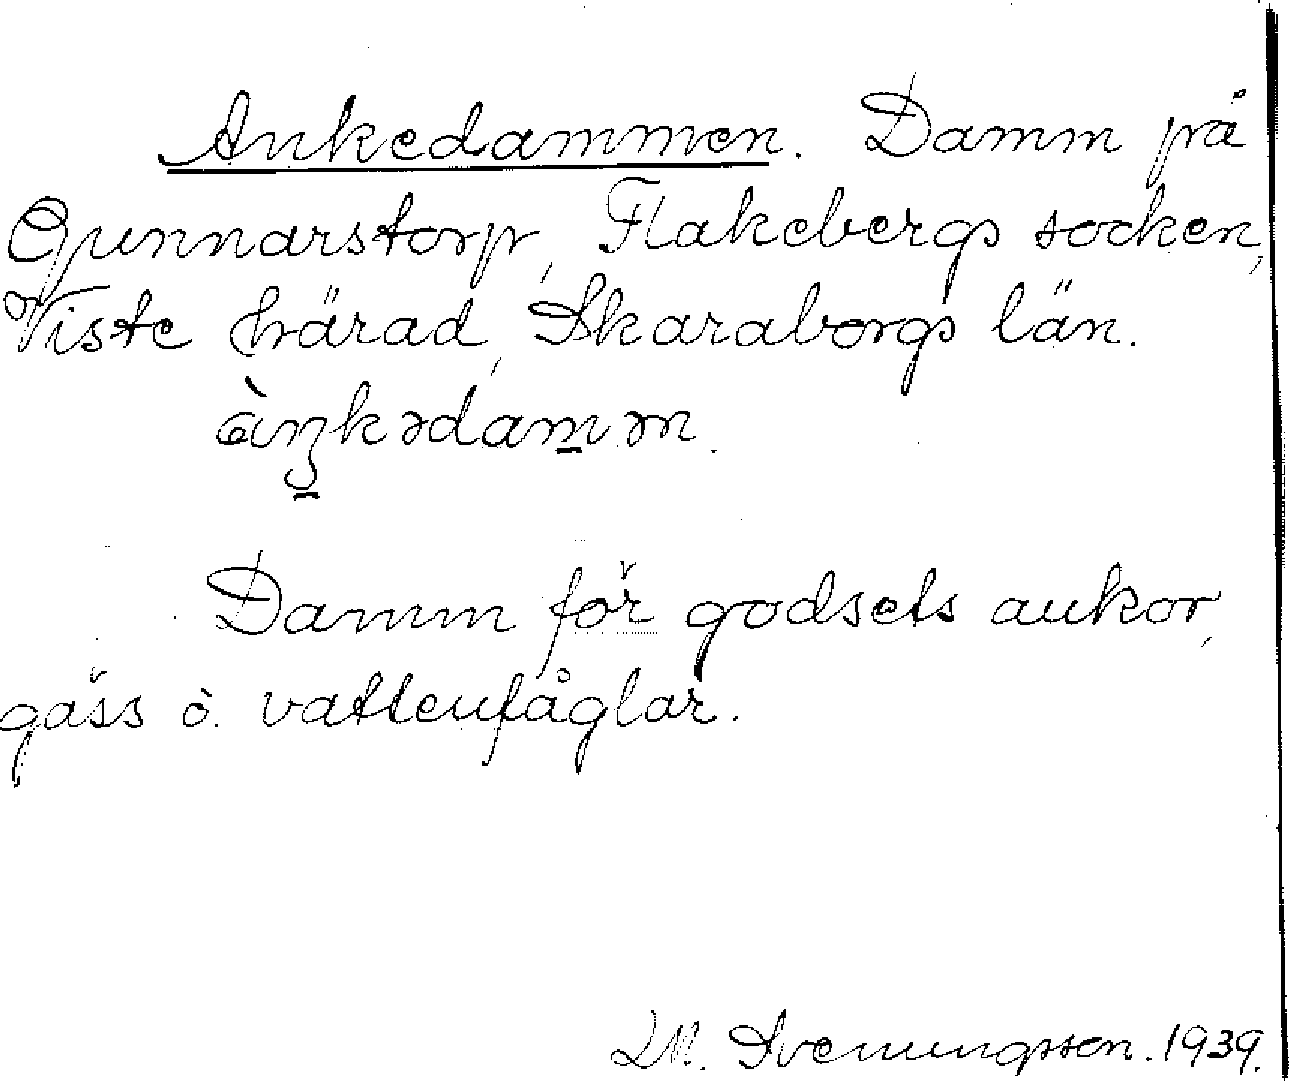 Ankedammen. Damm på
Gunnarstorp, Flakebergs socken,
Viste härad, Skaraborgs län.
àŋkədamən.
Damm för godsets ankor,
gäss o. vattenfåglar.
Svenungsson. 1939.